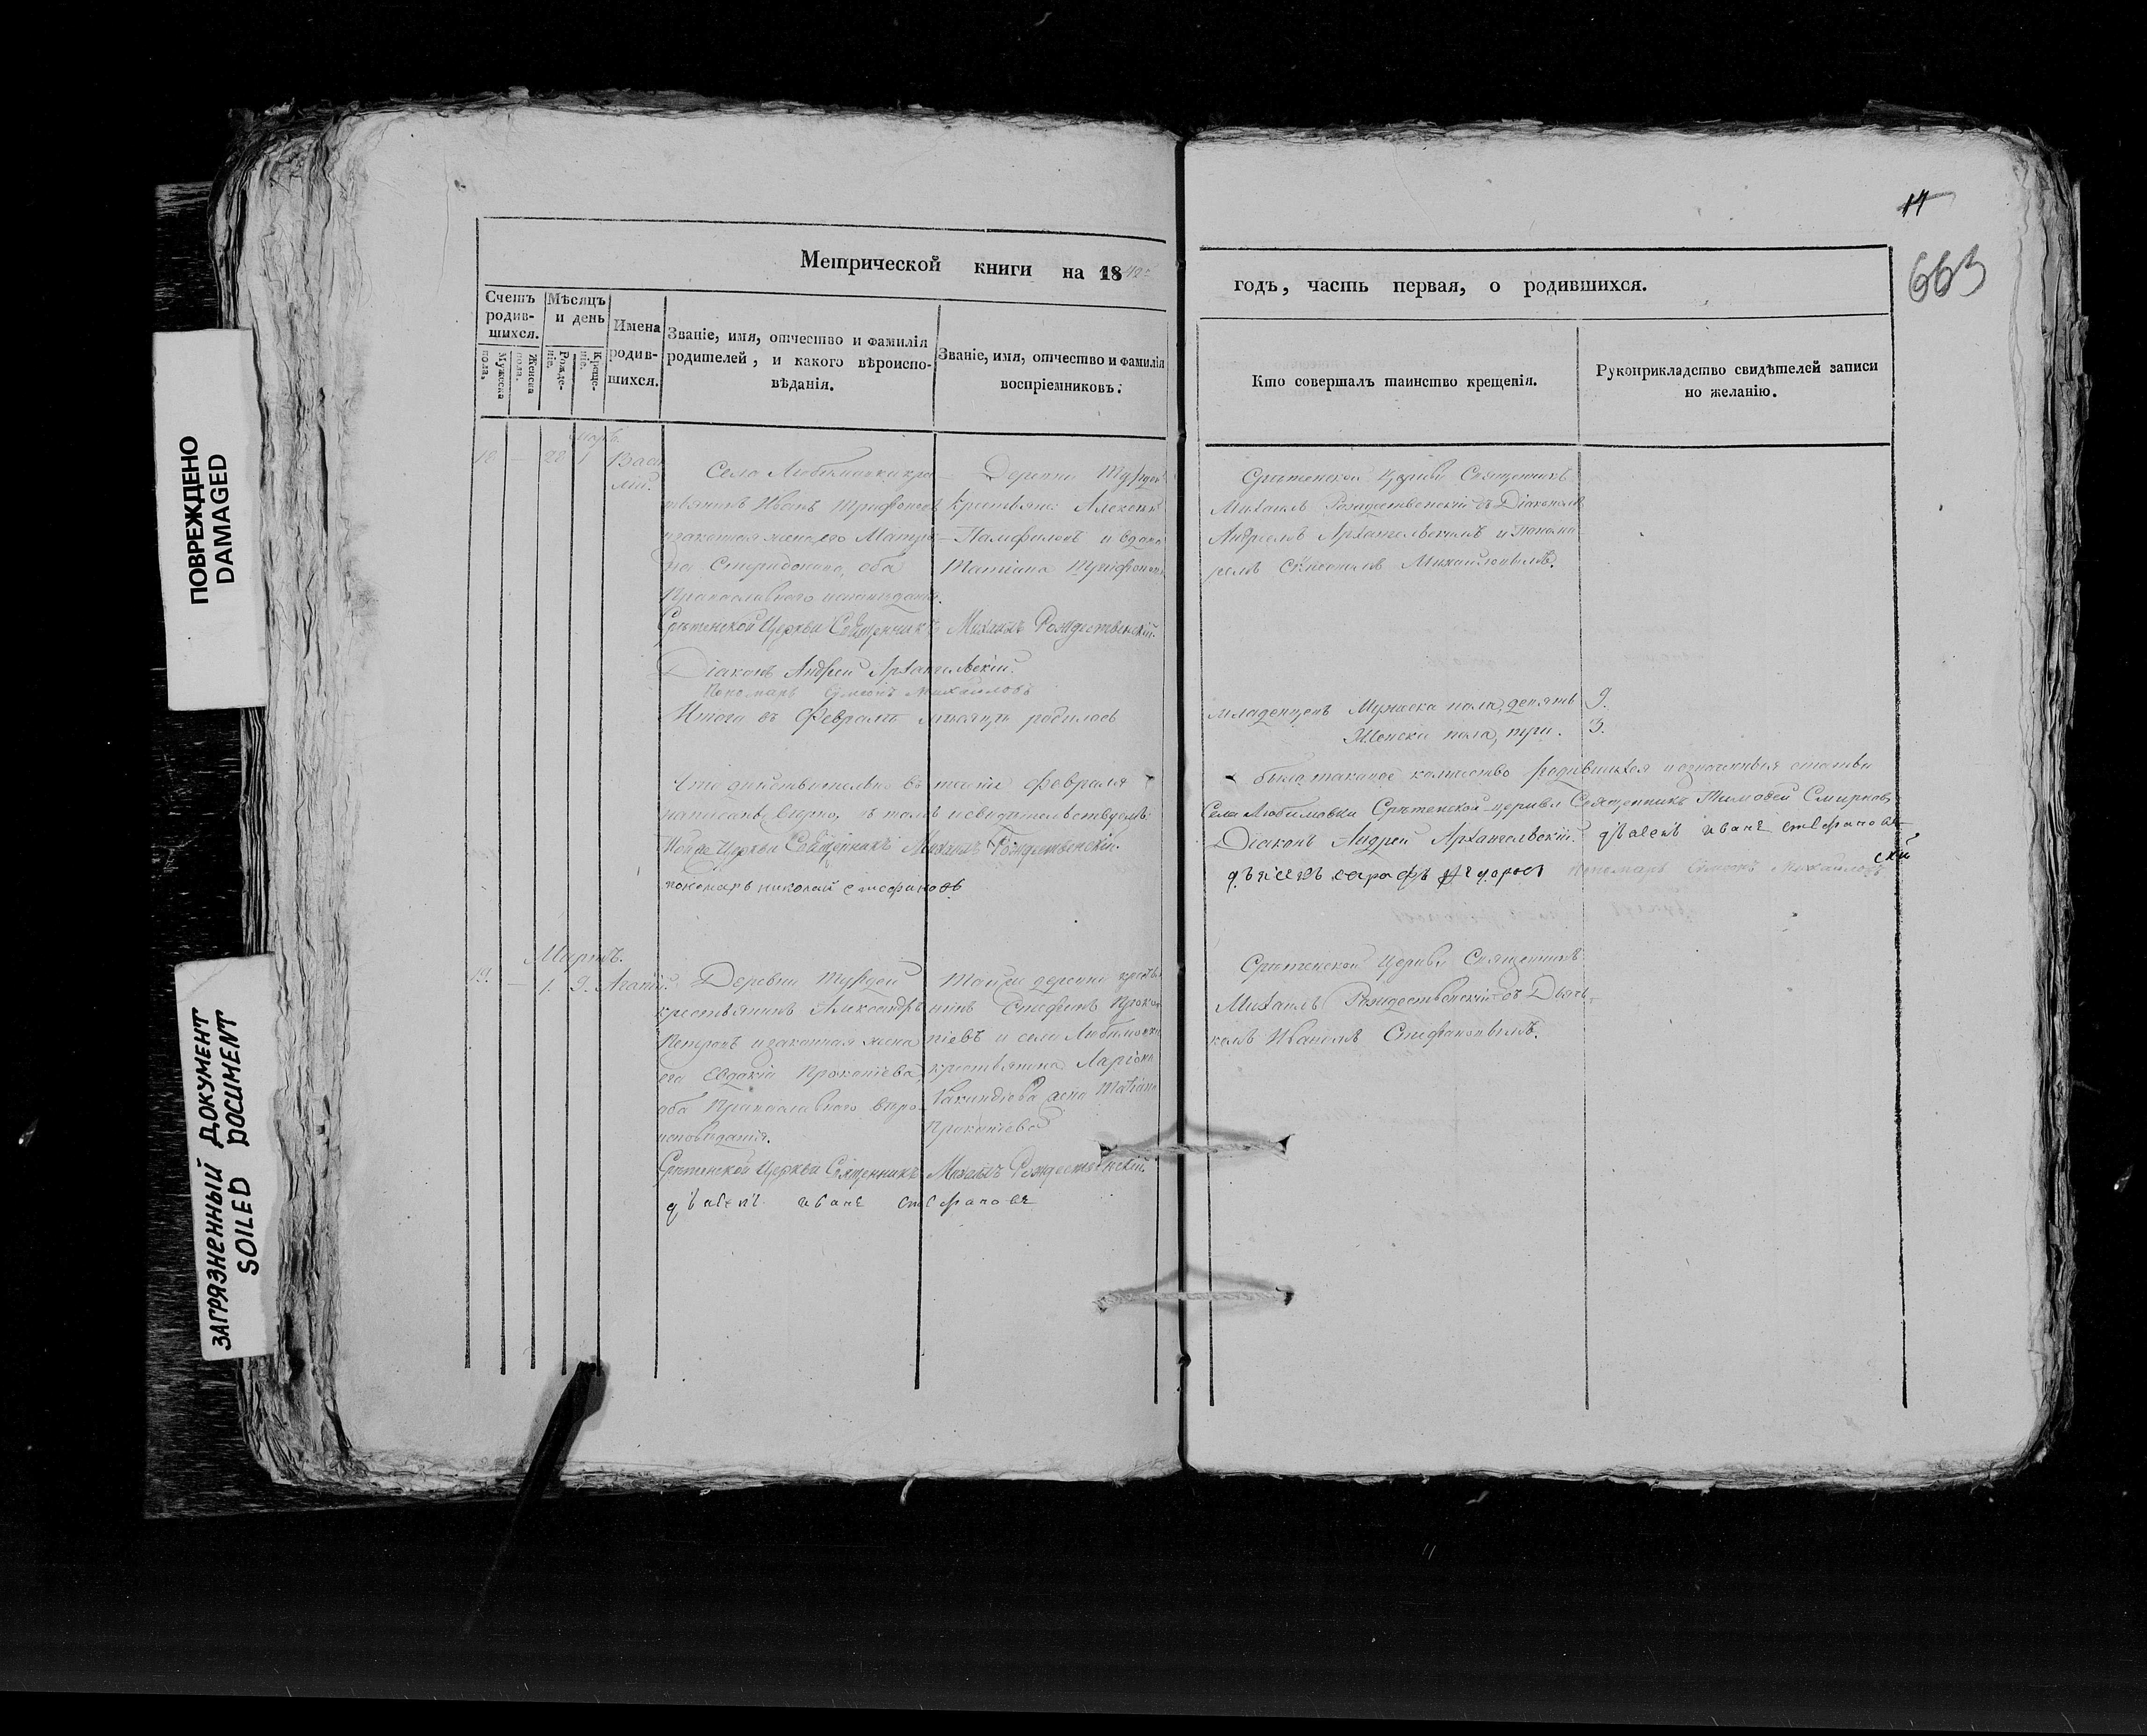 ПОВРЕЖДЕНО
DAMAGED
ЗАГРЯЗНЕННЫЙ ДОКУМЕНТ
SOILED DOCUMENT
Метрической книги на 18
Счетъ родившихся.
Мужеска пола.
Женска пола.
Мѣсяцъ и день
Рожденіе.
Крещеніе.
Имена родившихся.
Званіе, имя, отчество и фамилія родителей, и какого вѣроисповѣданія.
Званіе, имя, отчество и фамилія воспріемниковъ.
18 — 28 1
Села Любимовки кре
стьянинъ Иванъ Трифоновъ
и законная жена его Матре
на Спиридонова, оба
Православнаго исповеданія.
Крестьяне Алексѣй
Памфиловъ и вдова
Татіана Трифонова
Срѣтенской Церкви Священникъ Михаилъ Рождественскій.
Діаконъ Андрей Архангельскій.
Пономарь Симеонъ Михайловъ
Итого въ Февралѣ месяцѣ родилось
Что дѣйствительно въ Февраля
написано верно, въ томъ и свидетельствуемъ:
Той же Церкви Священникъ Михаилъ Рождественскій.
пономарь николай стефановъ
Мартъ.
19. — 1. 9. Агапій.
Деревни
крестьянинъ Александръ
Петровъ и законная жена
его Евдокія Прокопіева,
оба Православного веро-
исповѣданія.
Той же деревни крестья
нинъ Стефанъ Проко
піевъ и села Любимовки
крестьянина Ларіона
жена Татіана
Прокопіева
Срѣтенской Церкви Священникъ Михаилъ Рождественскій.
дьячекъ иванъ стефановъ
14
663
годъ, часть первая, о родившихся.
Кто совершалъ таинство крещенія.
Рукоприкладство свидѣтелей записи по желанію.
Срѣтенской Церкви Священникъ
Михаилъ Рождественскій съ Діакономъ
Андреемъ Архангельскимъ и Понома
ремъ Симеономъ Михайловымъ.
младенцевъ Мужеска пола, девять 9.
Женска пола, три. 3.
было таковое количество родившихся
Села Любимовки Срѣтенской церкви Священникъ Тимофей Смирновъ
Діаконъ Андрей Архангельскій. дьячекъ иванъ стефановъ
Пономарь Симеонъ Михайловъ
Срѣтенской Церкви Священникъ
Михаилъ Рождественскій съ Дьяч-
комъ Иваномъ Стефановымъ.